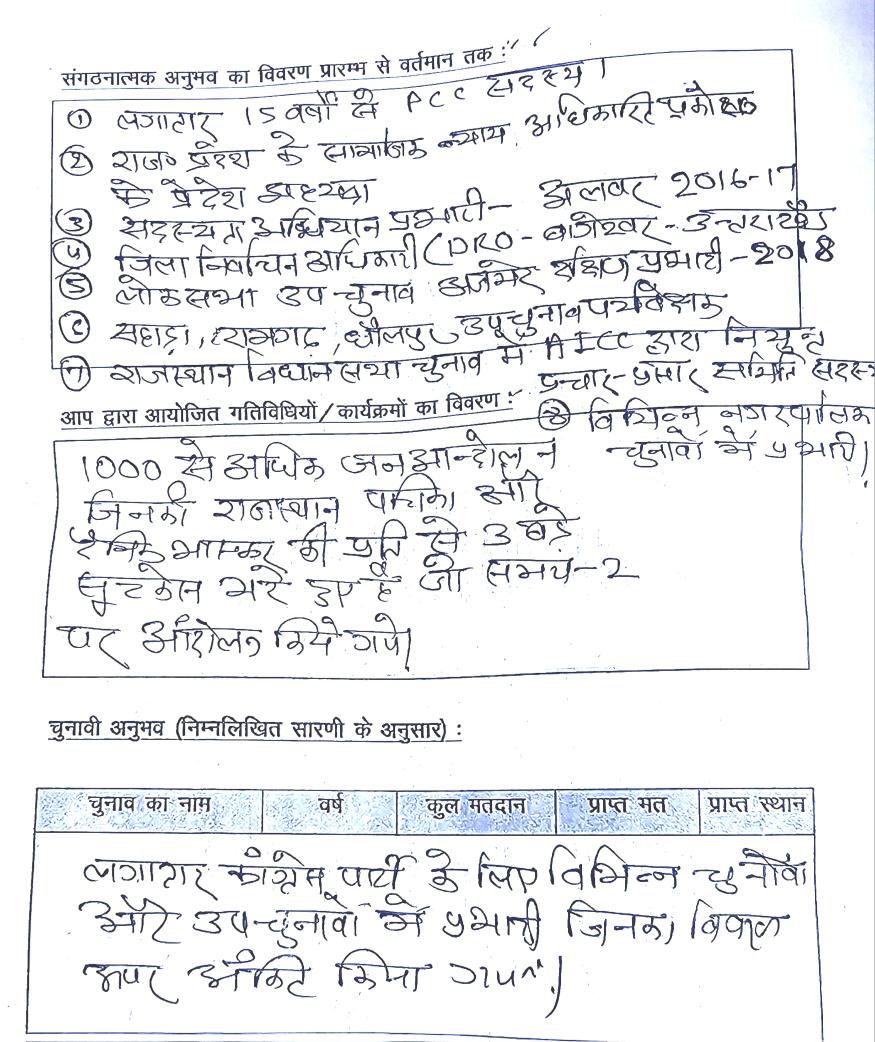 संगठनात्मक अनुभव का विवरण प्रारम्भ से वर्तमान तक :
① लगातार 15 वर्षों से PCC सदस्य।
② राज० प्रदेश के सामाजिक न्याय अधिकारिता प्रकोष्ठ
के प्रदेश अध्यक्ष
③ सदस्यता अभियान प्रभारी - अलवर 2016-17
④ जिला निर्वाचन अधिकारी (DRO - बागेश्वर - उत्तराखण्ड
⑤ लोकसभा उपचुनाव अजमेर दक्षिण प्रभारी - 2018
⑥ सहाड़ा, रामगढ़, धौलपुर उपचुनाव पर्यवेक्षक
⑦ राजस्थान विधानसभा चुनाव में AICC द्वारा नियुक्त
प्रचार-प्रसार समिति सदस्य
आप द्वारा आयोजित गतिविधियों/कार्यक्रमों का विवरण :
⑧ विभिन्न नगरपालिका
चुनावों में प्रभारी।
1000 से अधिक जनआन्दोलन
जिनकी राजस्थान पत्रिका और
दैनिक भास्कर की प्रति से 3 बड़े
सूटकेस भरे हुए है जो समय-2
पर आंदोलन किये गये।
चुनावी अनुभव (निम्नलिखित सारणी के अनुसार) :
चुनाव का नाम वर्ष कुल मतदान प्राप्त मत प्राप्त स्थान
लगातार कांग्रेस पार्टी के लिए विभिन्न चुनावों
और उपचुनावों में प्रभारी जिनका विवरण
ऊपर अंकित किया गया।